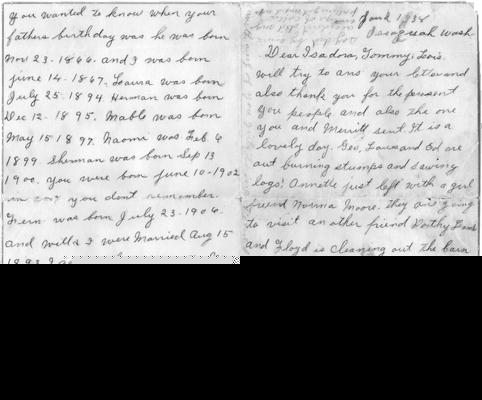 you wanted to know when your
fathers birthday was he was born
Nov 23-1866. and I was born
june 14-1867. Laura was born
July 25-1894 Herman was born
Dec 12-1895. Mable was born
May 15-1897. Naomi was Feb 6
1899. Sherman was born Sep 13
1900. you were born june 10-1902
in case you dont remember.
Fern was born July 23-1906.
and will & I were Married Aug 15
1893
Jan 1938
Issaquah Wash.
Dear Isadora, Tommy, Lois.
will try to ans your letter and
also thank you for the present
you people and also the one
you and Merritt sent. It is a
lovely day. Geo, Laura and Ed are
out burning stumps and sawing
logs. Annette just left with a girl
friend Norma Moore. they are going
to visit an other friend Dorthy
and Floyd is cleaning out the barn